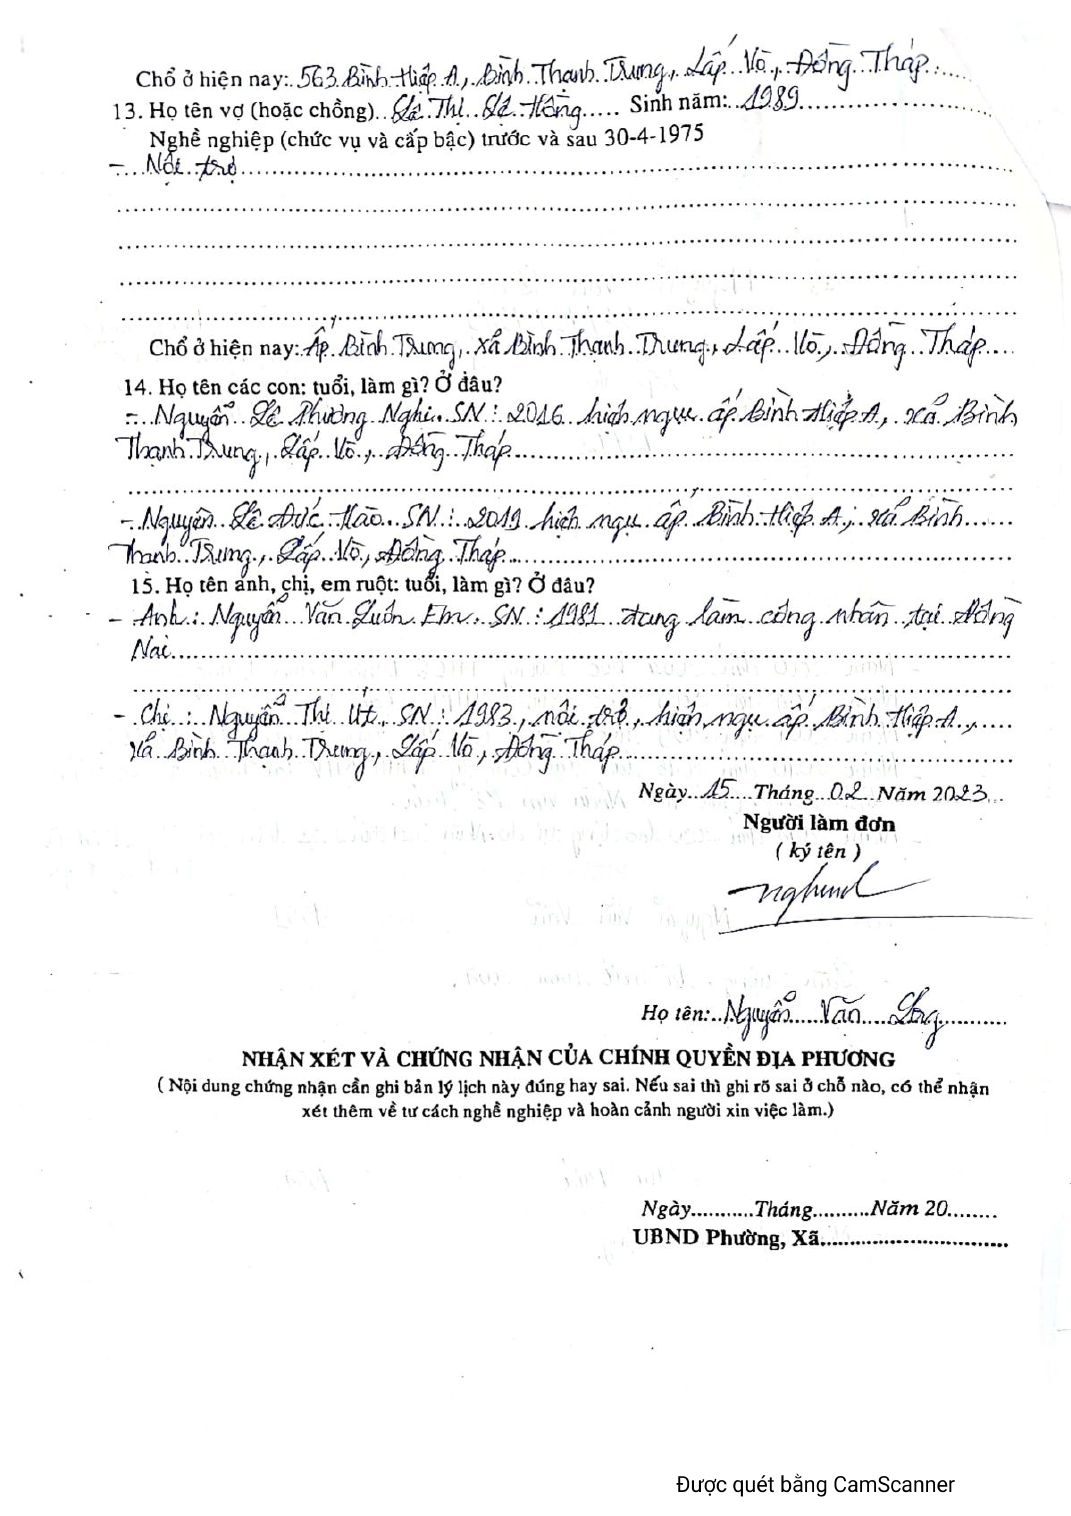 Chổ ở hiện nay:..563 Bình Hiệp A, Bình Thạnh Trung, Lấp Vò, Đồng Tháp
13. Họ tên vợ (hoặc chồng)..Lê Thị Lệ Hồng..... Sinh năm:..1989
Nghề nghiệp (chức vụ và cấp bậc) trước và sau 30-4-1975
- Nội trợ
Chổ ở hiện nay: Ấp Bình Trung, xã Bình Thạnh Trung, Lấp Vò, Đồng Tháp
14. Họ tên các con: tuổi, làm gì? Ở đâu?
- Nguyễn Lê Phương Nghi SN: 2016 hiện ngụ ấp Bình Hiệp A, xã Bình
Thạnh Trung, Lấp Vò, Đồng Tháp
- Nguyễn Lê Đức Hào SN: 2019 hiện ngụ ấp Bình Hiệp A, xã Bình
Thạnh Trung, Lấp Vò, Đồng Tháp
15. Họ tên anh, chị, em ruột: tuổi, làm gì? Ở đâu?
- Anh: Nguyễn Văn Luôn Em. SN: 1981 đang làm công nhân tại Đồng
Nai
- Chị: Nguyễn Thị Út, SN: 1983, nội trợ, hiện ngụ ấp Bình Hiệp A,
xã Bình Thạnh Trung, Lấp Vò, Đồng Tháp
Ngày 15 Tháng 02 Năm 2023
Người làm đơn
( ký tên )
Họ tên: Nguyễn Văn
NHẬN XÉT VÀ CHỨNG NHẬN CỦA CHÍNH QUYỀN ĐỊA PHƯƠNG
( Nội dung chứng nhận cần ghi bản lý lịch này đúng hay sai. Nếu sai thì ghi rõ sai ở chỗ nào, có thể nhận
xét thêm về tư cách nghề nghiệp và hoàn cảnh người xin việc làm.)
Ngày...........Tháng..........Năm 20........
UBND Phường, Xã................................
Được quét bằng CamScanner